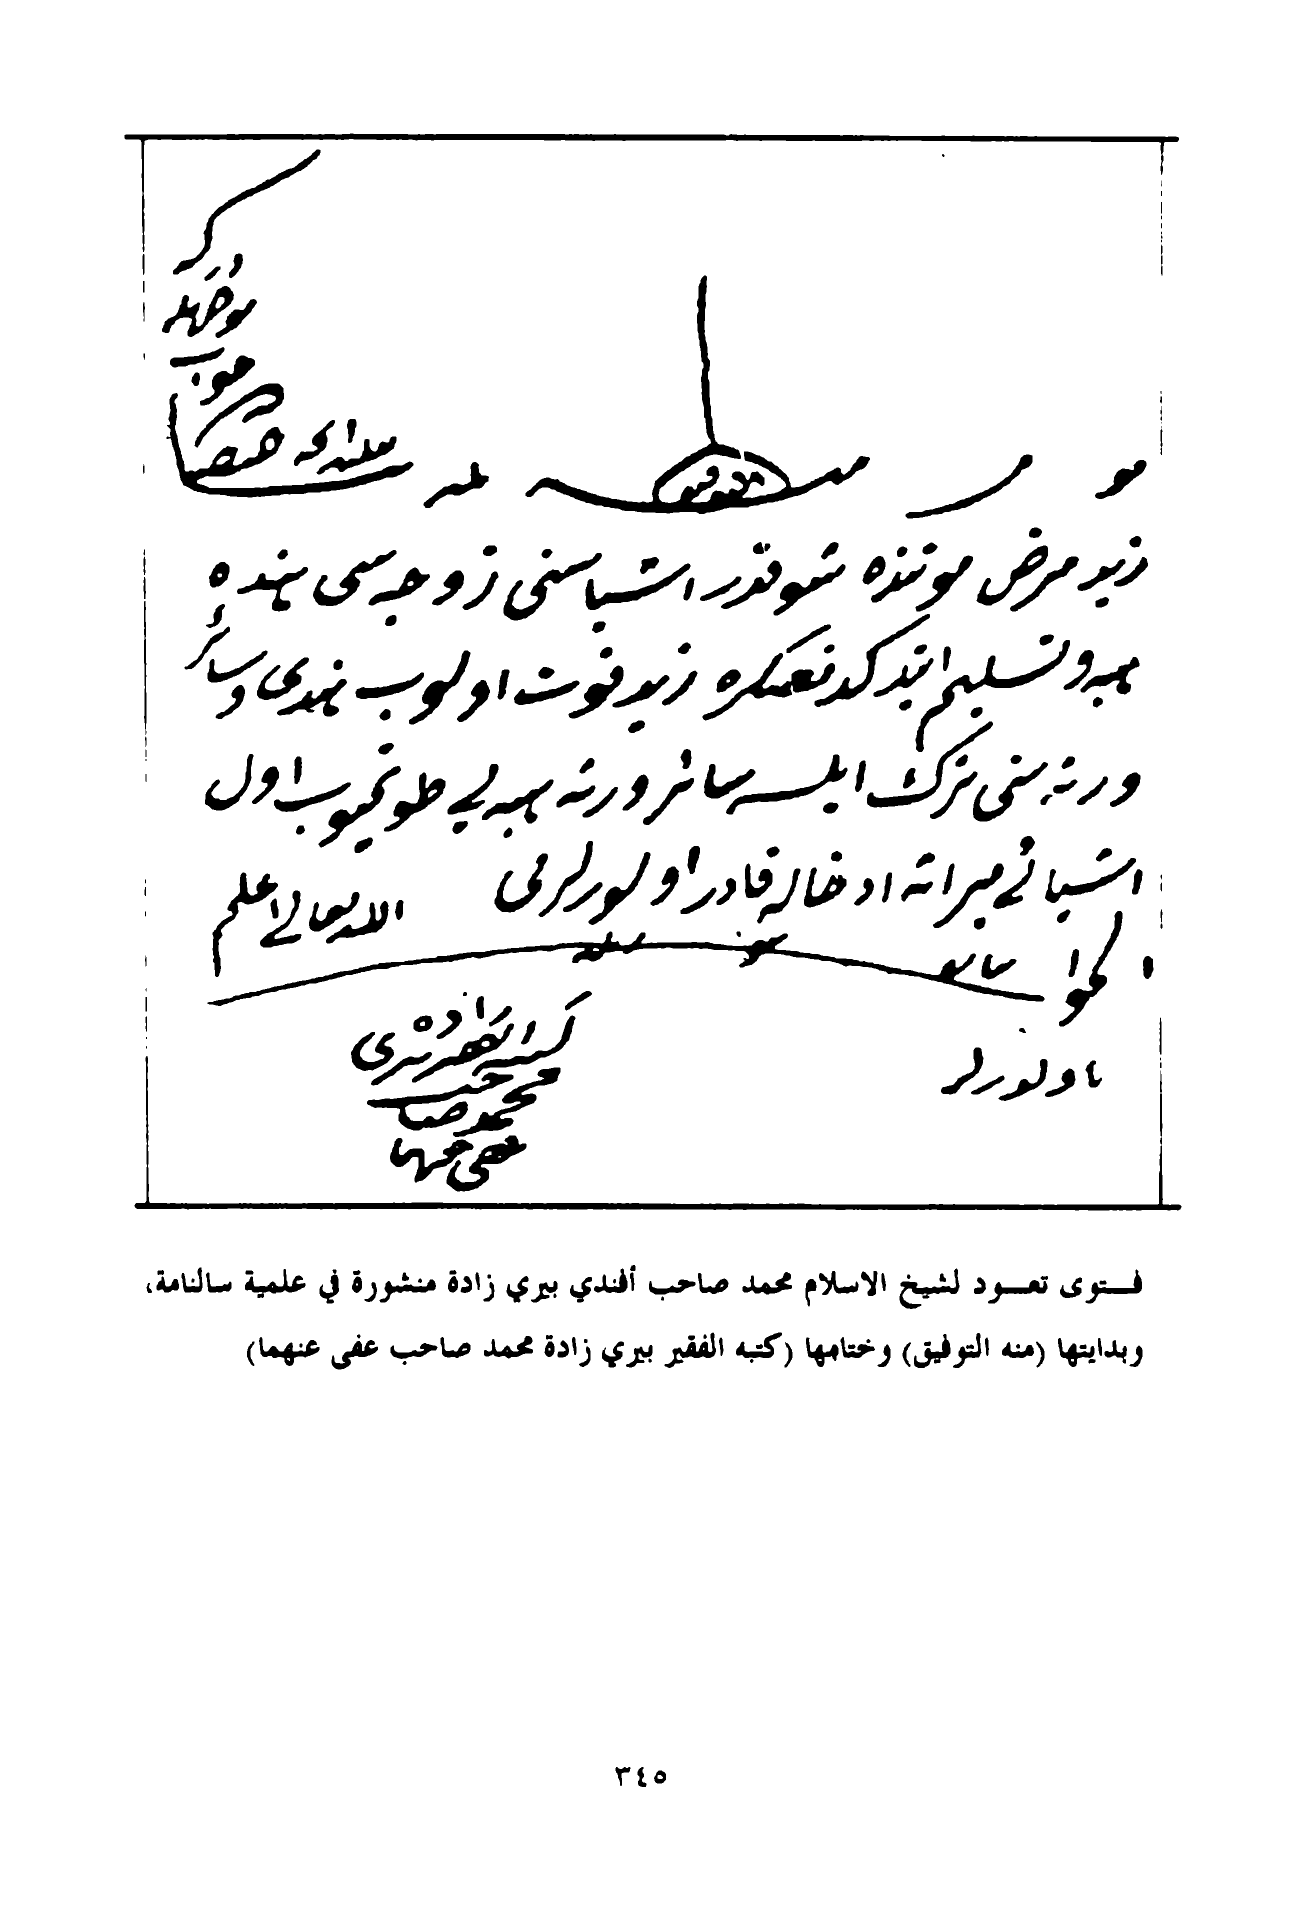 منه التوفيق
زيد مرض موتنده شو قدر اشياسنى زوجه سى هنده
هبه و تسليم ايتدكدنصكره زيد فوت اولوب هندى و سائر
ورثه سنى ترك ايلسه سائر ورثه هبه يى طوتميوب اول
اشيائى ميراثه ادخاله قادر اولورلرمى الله تعالى اعلم
الجواب
اولورلر
كتبه الفقير پيرى زاده
محمد صاحب
عفى عنهما
فـتوى تعـود لشيخ الاسلام محمد صاحب أفندي بيري زادة منشورة في علمية سالنامة،
وبدايتها (منه التوفيق) وختامها (كتبه الفقير بيري زادة محمد صاحب عفى عنهما)
٣٤٥